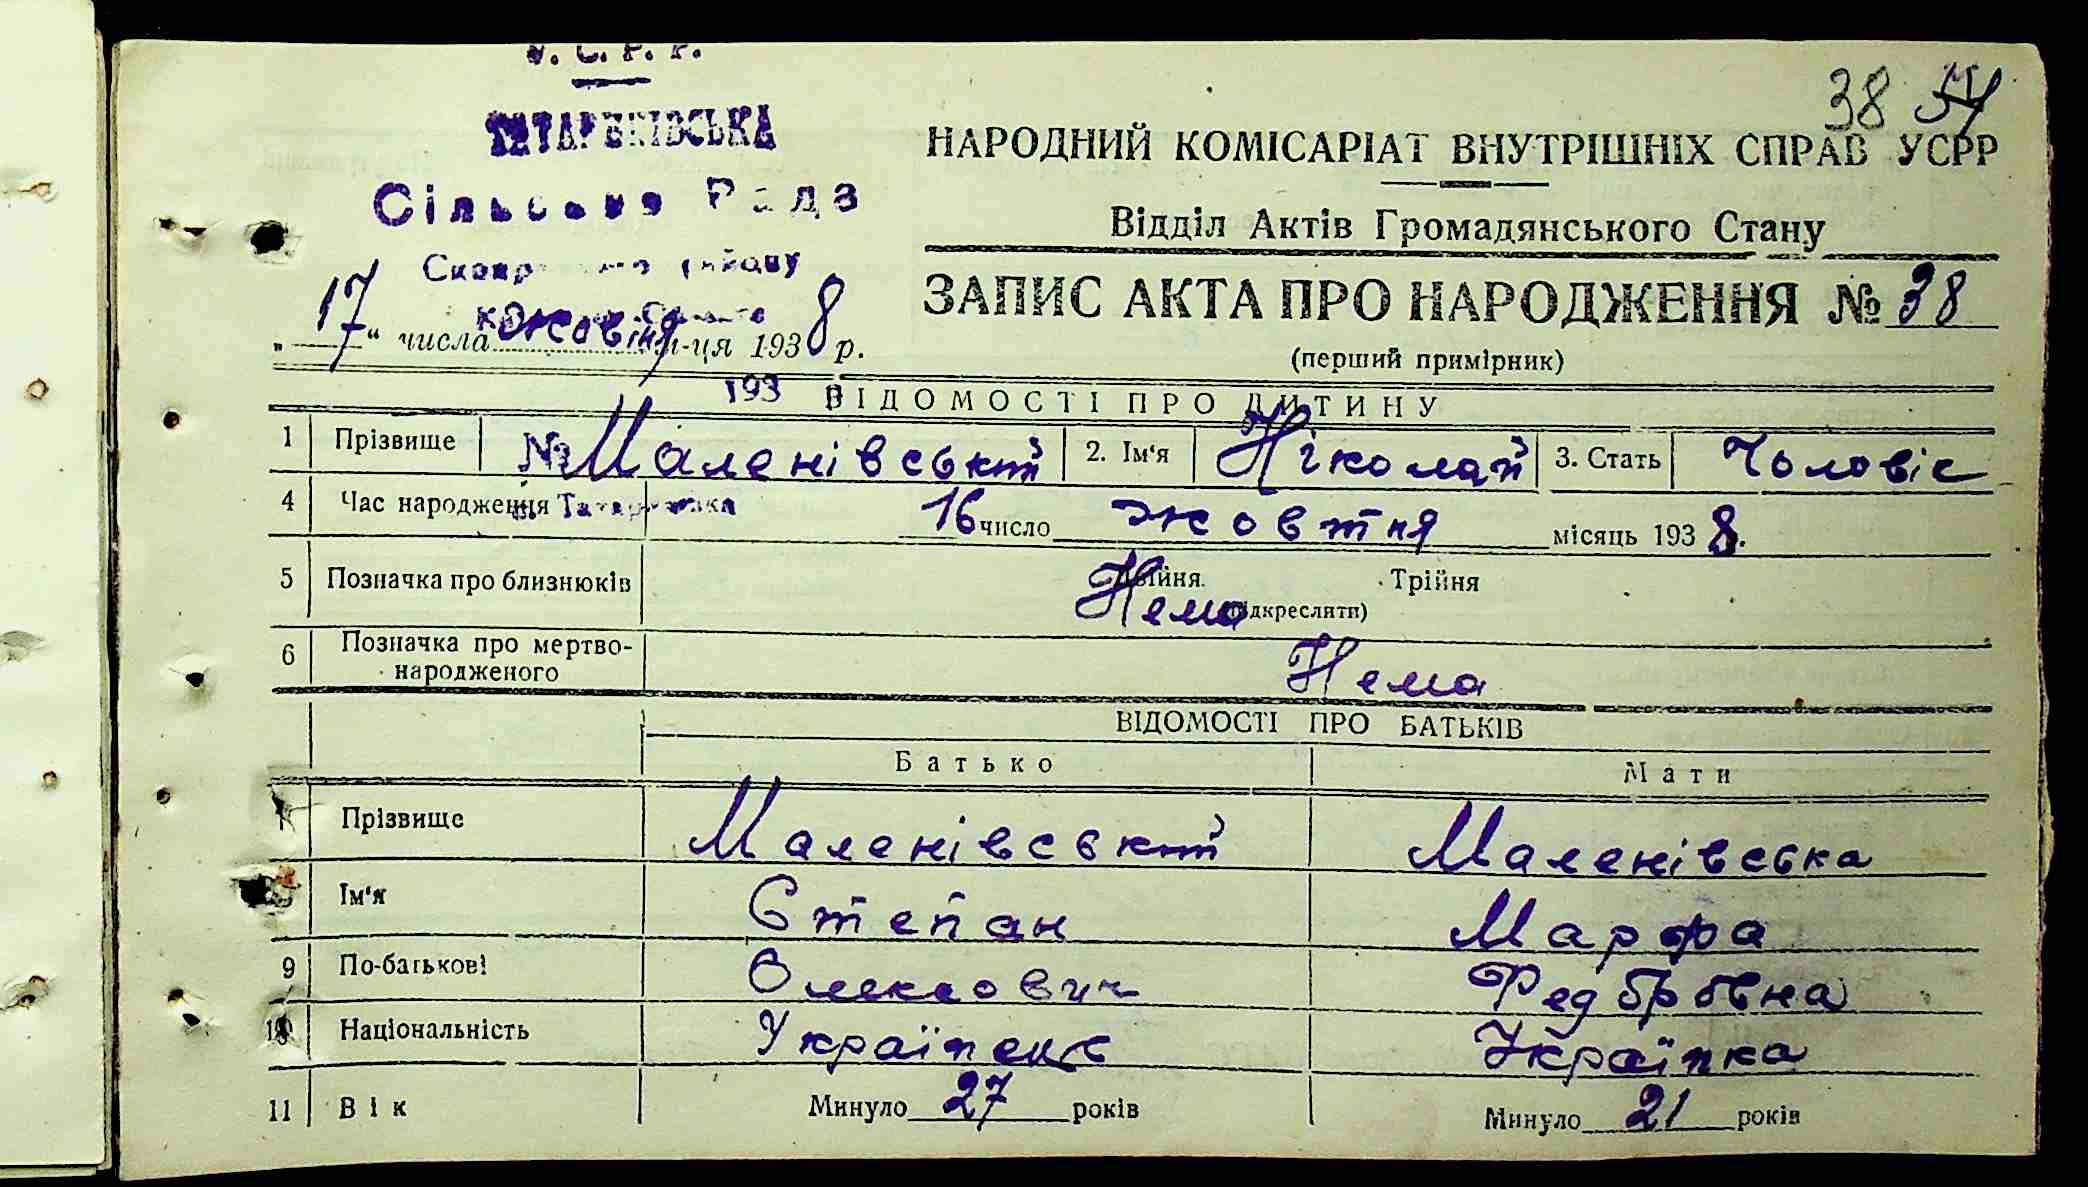 У. С. Р. Р.
ТАТАРИНІВСЬКА
Сільська Рада
району
38 54
НАРОДНИЙ КОМІСАРІАТ ВНУТРІШНІХ СПРАВ УСРР
Відділ Актів Громадянського Стану
ЗАПИС АКТА ПРО НАРОДЖЕННЯ № 38
(перший примірник)
„17“ числа жовтня м-ця 1938 р.
193
ВІДОМОСТІ ПРО ДИТИНУ
1 Прізвище № Маленівський 2. Ім'я Ніколай 3. Стать Чоловіс
4 Час народження 16 число жовтня місяць 1938.
5 Позначка про близнюків Двійня. Трійня
Нема (підкреслити)
6 Позначка про мертво-
народженого Нема
ВІДОМОСТІ ПРО БАТЬКІВ
Батько Мати
Прізвище Маленівський Маленівська
Ім'я Степан Марфа
9 По-батькові Олексович Федоровна
10 Національність Українець Українка
11 Вік Минуло 27 років Минуло 21 років